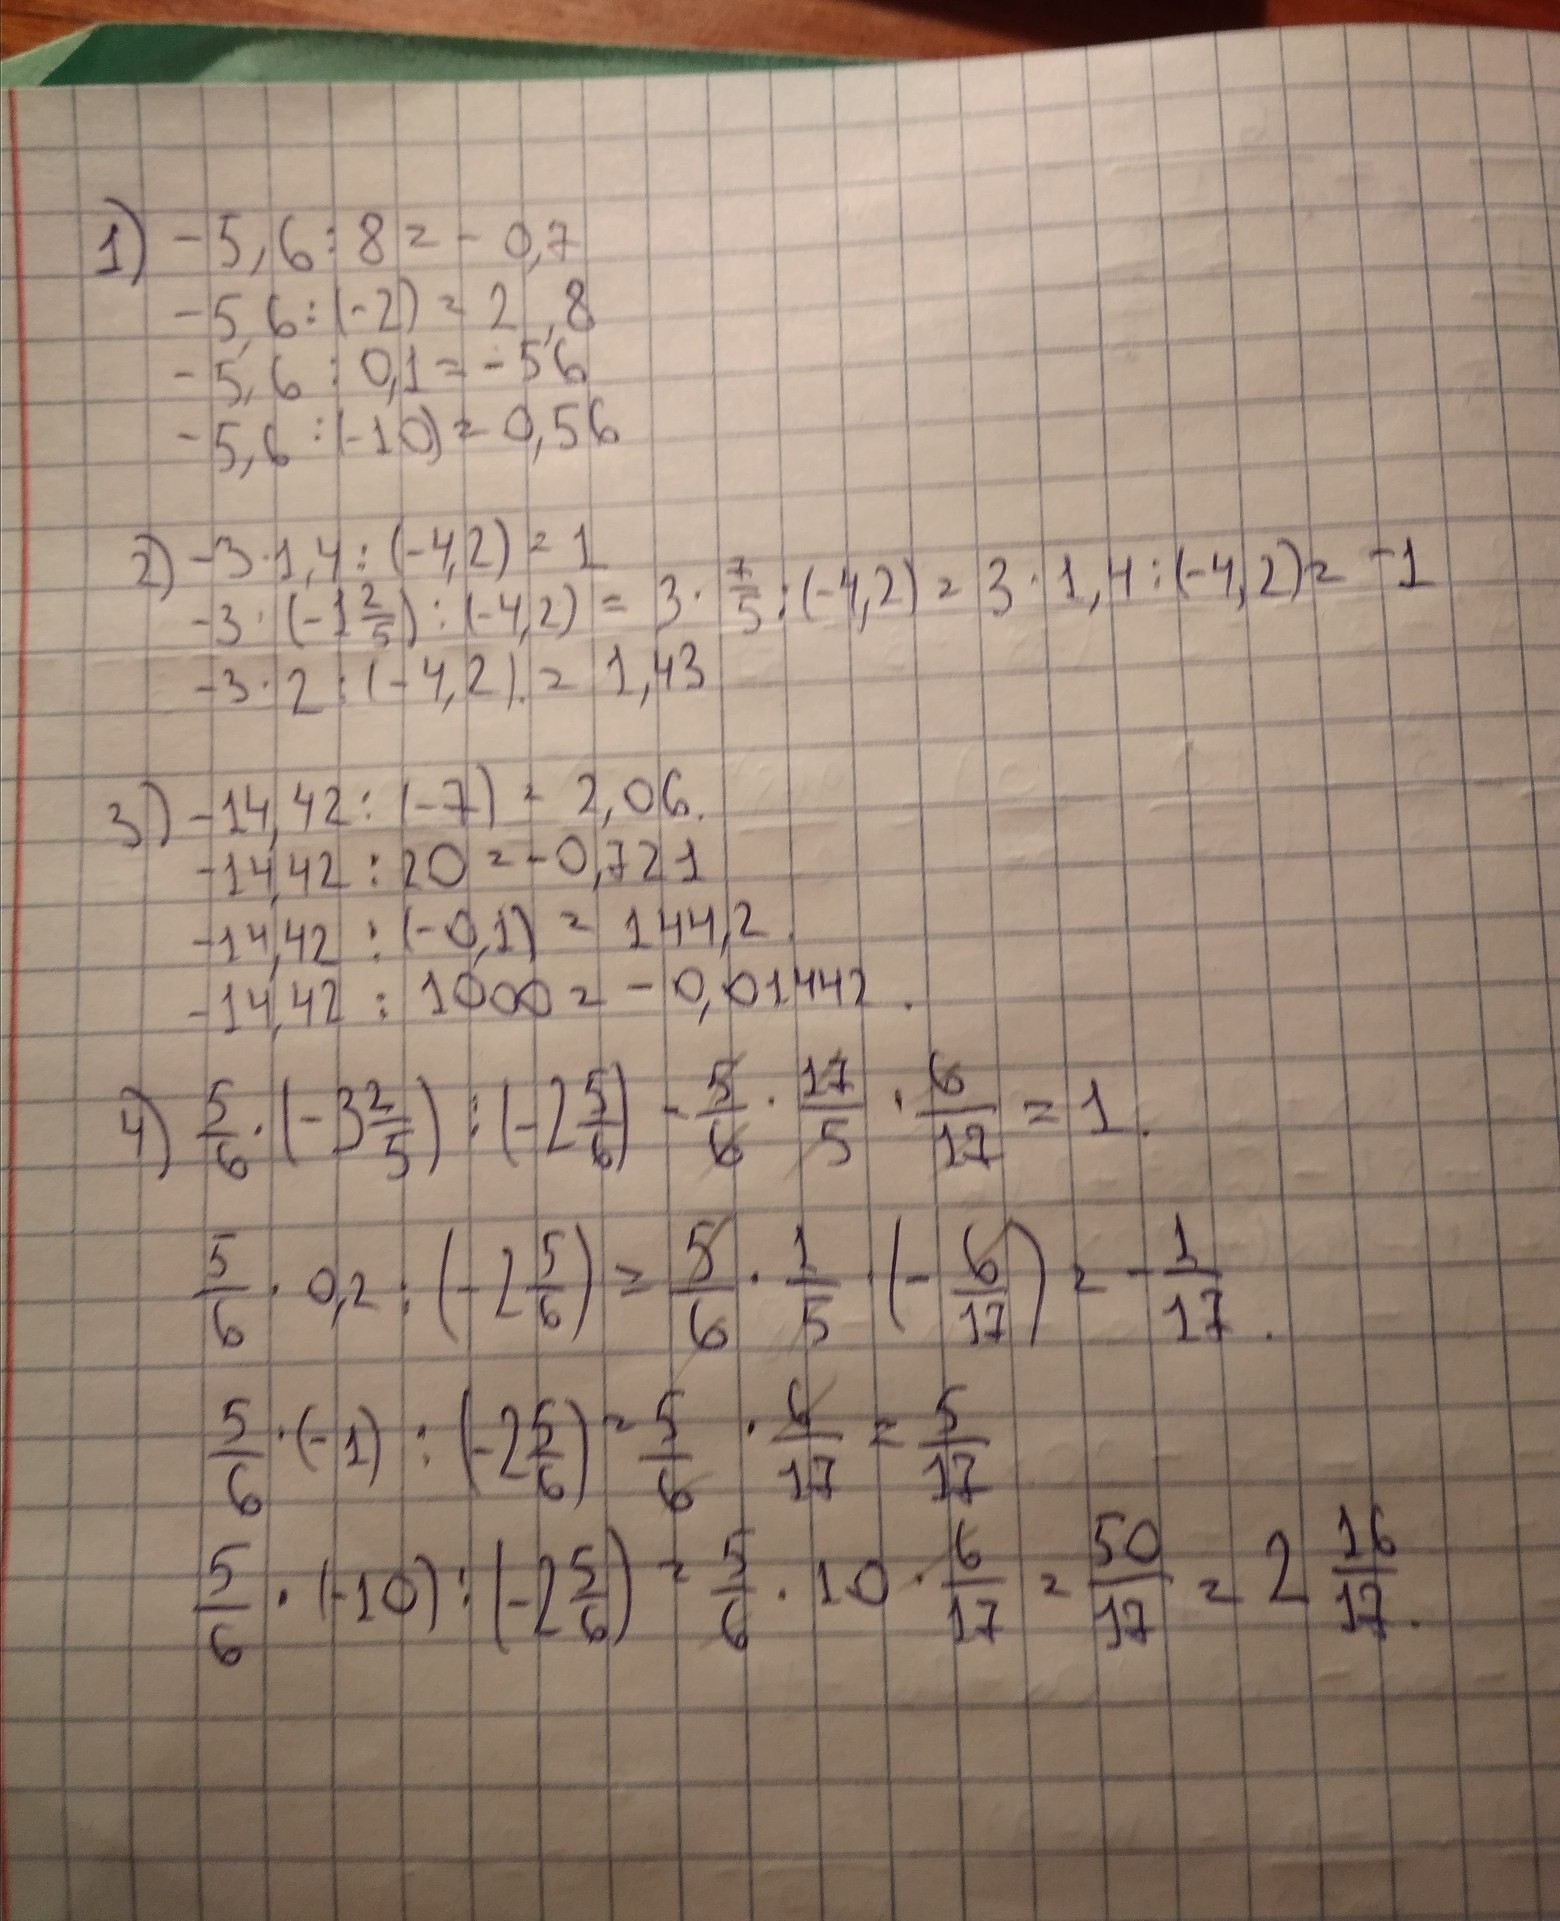 1) -5,6 : 8 = - 0,7
-5,6 : (-2) = 2,8
-5,6 : 0,1 = -56
-5,6 : (-10) = 0,56
2) -3·1,4 : (-4,2) = 1
-3·(-1 2/5) : (-4,2) = 3 · 7/5 : (-4,2) = 3 · 1,4 : (-4,2) = -1
-3·2 : (-4,2) = 1,43
3) -14,42 : (-7) = 2,06.
-14,42 : 20 = -0,721
-14,42 : (-0,1) = 144,2.
-14,42 : 1000 = -0,01442.
4) 5/6 · (-3 2/5) : (-2 5/6) = 5/6 · 17/5 · 6/17 = 1.
5/6 · 0,2 : (-2 5/6) = 5/6 · 1/5 · (-6/17) = -1/17.
5/6 · (-1) : (-2 5/6) = 5/6 · 6/17 = 5/17
5/6 · (-10) : (-2 5/6) = 5/6 · 10 · 6/17 = 50/17 = 2 16/17.